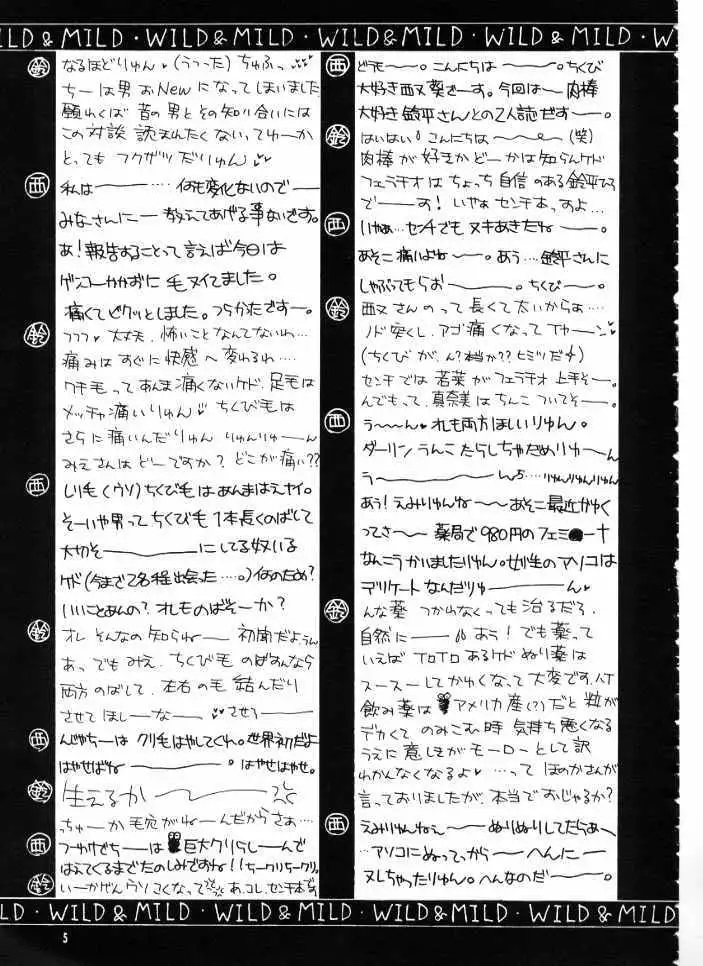 WILD & MILD・WILD & MILD・WILD & MILD・WILD & MILD・W
西 どうも〜〜。こんにちは〜〜。ちくび
大好き西又葵でーす。今回は〜肉棒
大好き鈴平さんとの2人誌でーす〜。
鈴 はいはい こんにちは〜〜 (笑)
肉棒が好きかどーかは知らんケド
フェラチオはちょっち自信のある鈴平ひろ
で〜す! いやぁ センチあっすよ…
西
あそこ痛いよね〜〜。あう…鈴平さんに
しゃぶってもらお〜〜。ちくび〜〜。
鈴 西又さんのって長くて太いからぁ…
ノド突くし、アゴ痛くなって
(ちくびが、ん?本当か??ヒミツだ)
西 う〜〜ん♥ おれも両方ほしいりゅん。
ダーリン うんこ たらしちゃだめりゅ〜〜ん
う〜〜 んち…りゅんりゅんりゅん
あう! えみりゅんね〜〜あそこ最近かゆく
ってさ〜〜 薬局で980円のフェミ●ー十
なんこうかいましたりゅん。女の生のアソコは
デリケートなんだりゅ〜〜ん♥
鈴 んな薬 つかわなくっても治るだろ、
自然に〜〜 あう! でも薬って
いえば イロイロあるケド ぬり薬は
スースーしてかゆくなって大変です。
飲み薬は アメリカ産(?)だと粒が
デカくて のみこむ時 気持ち悪くなる
うえに意しきがモーローとして訳
わかんなくなるよ♥ …って ほのかさんが
言っておりましたが、本当でおじゃるか?
西 えみりゅんねぇ〜〜 ぬりぬりしてたらあ〜
…アソコにぬってっから〜〜へんに〜
ヌレちゃったりゅん。へんなのだ〜〜。
鈴 なるほどりゅん♥ (うつった) ちゅふっ
ちーは男 おNewになってしまいました
願わくば 昔の男とその知り合いには
この対談 読まれたくないってゆーか
とっても フクザツ だりゅん♥
西 私は〜〜…何も変化ないので〜
みなさんに〜教えてあげる事ないです。
あ!報告することって言えば今日は
ゲンコーかかずに 毛ヌイてました。
痛くてビクッとしました。つらかたでぅ〜。
鈴 フフフ♥ 大丈夫、怖いことなんてないわ…
痛みはすぐに快感へ変わるわ…
ワキ毛ってあんま痛くないケド、足毛は
メッチャ痛いりゅん♥ ちくび毛は
さらに痛いんだりゅん りゅんりゅ〜ん
みえさんはどーですか? どこが痛い??
西 しり毛(ウソ) ちくび毛はあんまはえナイ。
そーいや男ってちくび毛1本長くのばして
大切そ〜〜にしてる奴いる
ケド(今まで名程出会った…。)何のため?
いいことあんの? おれものばそーか?
鈴 オレ そんなの知らね〜 初聞だよぅん
あっ でもみえ、ちくび毛 のばすんなら
両方のばして、左右の毛 結んだり
させてほし〜な〜 ♥ させろ〜
西 んじゃちーは クリ毛はやしてくれ。世界初だよ
はやせばね〜〜。はやせはやせ。
鈴 生えるか〜〜
っちゅーか毛穴がね〜んだからさぁ…
西 つーわけでちーは 巨大クリらし〜んで
はえてくるまでたのしみですね!! ちークリちークリ。
鈴 い〜かげんウソこくなって あ、コレ、センチ本
LD・WILD & MILD・WILD & MILD・WILD & MILD・WILD & MILD
5